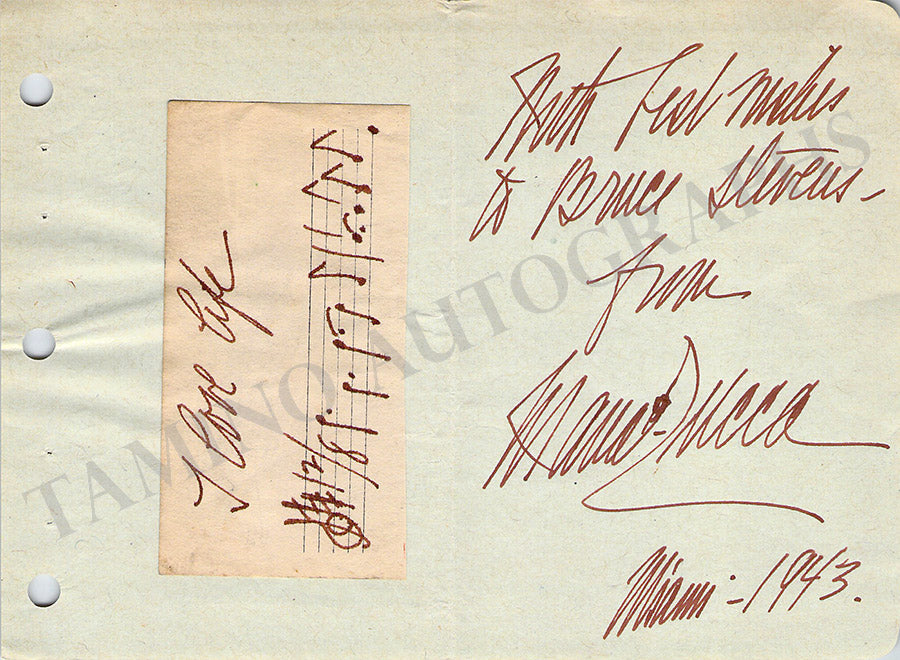 I love life
With Best wishes
to Bruce Stevens -
from
Mana-Zucca
Miami - 1943.
TAMINO AUTOGRAPHS